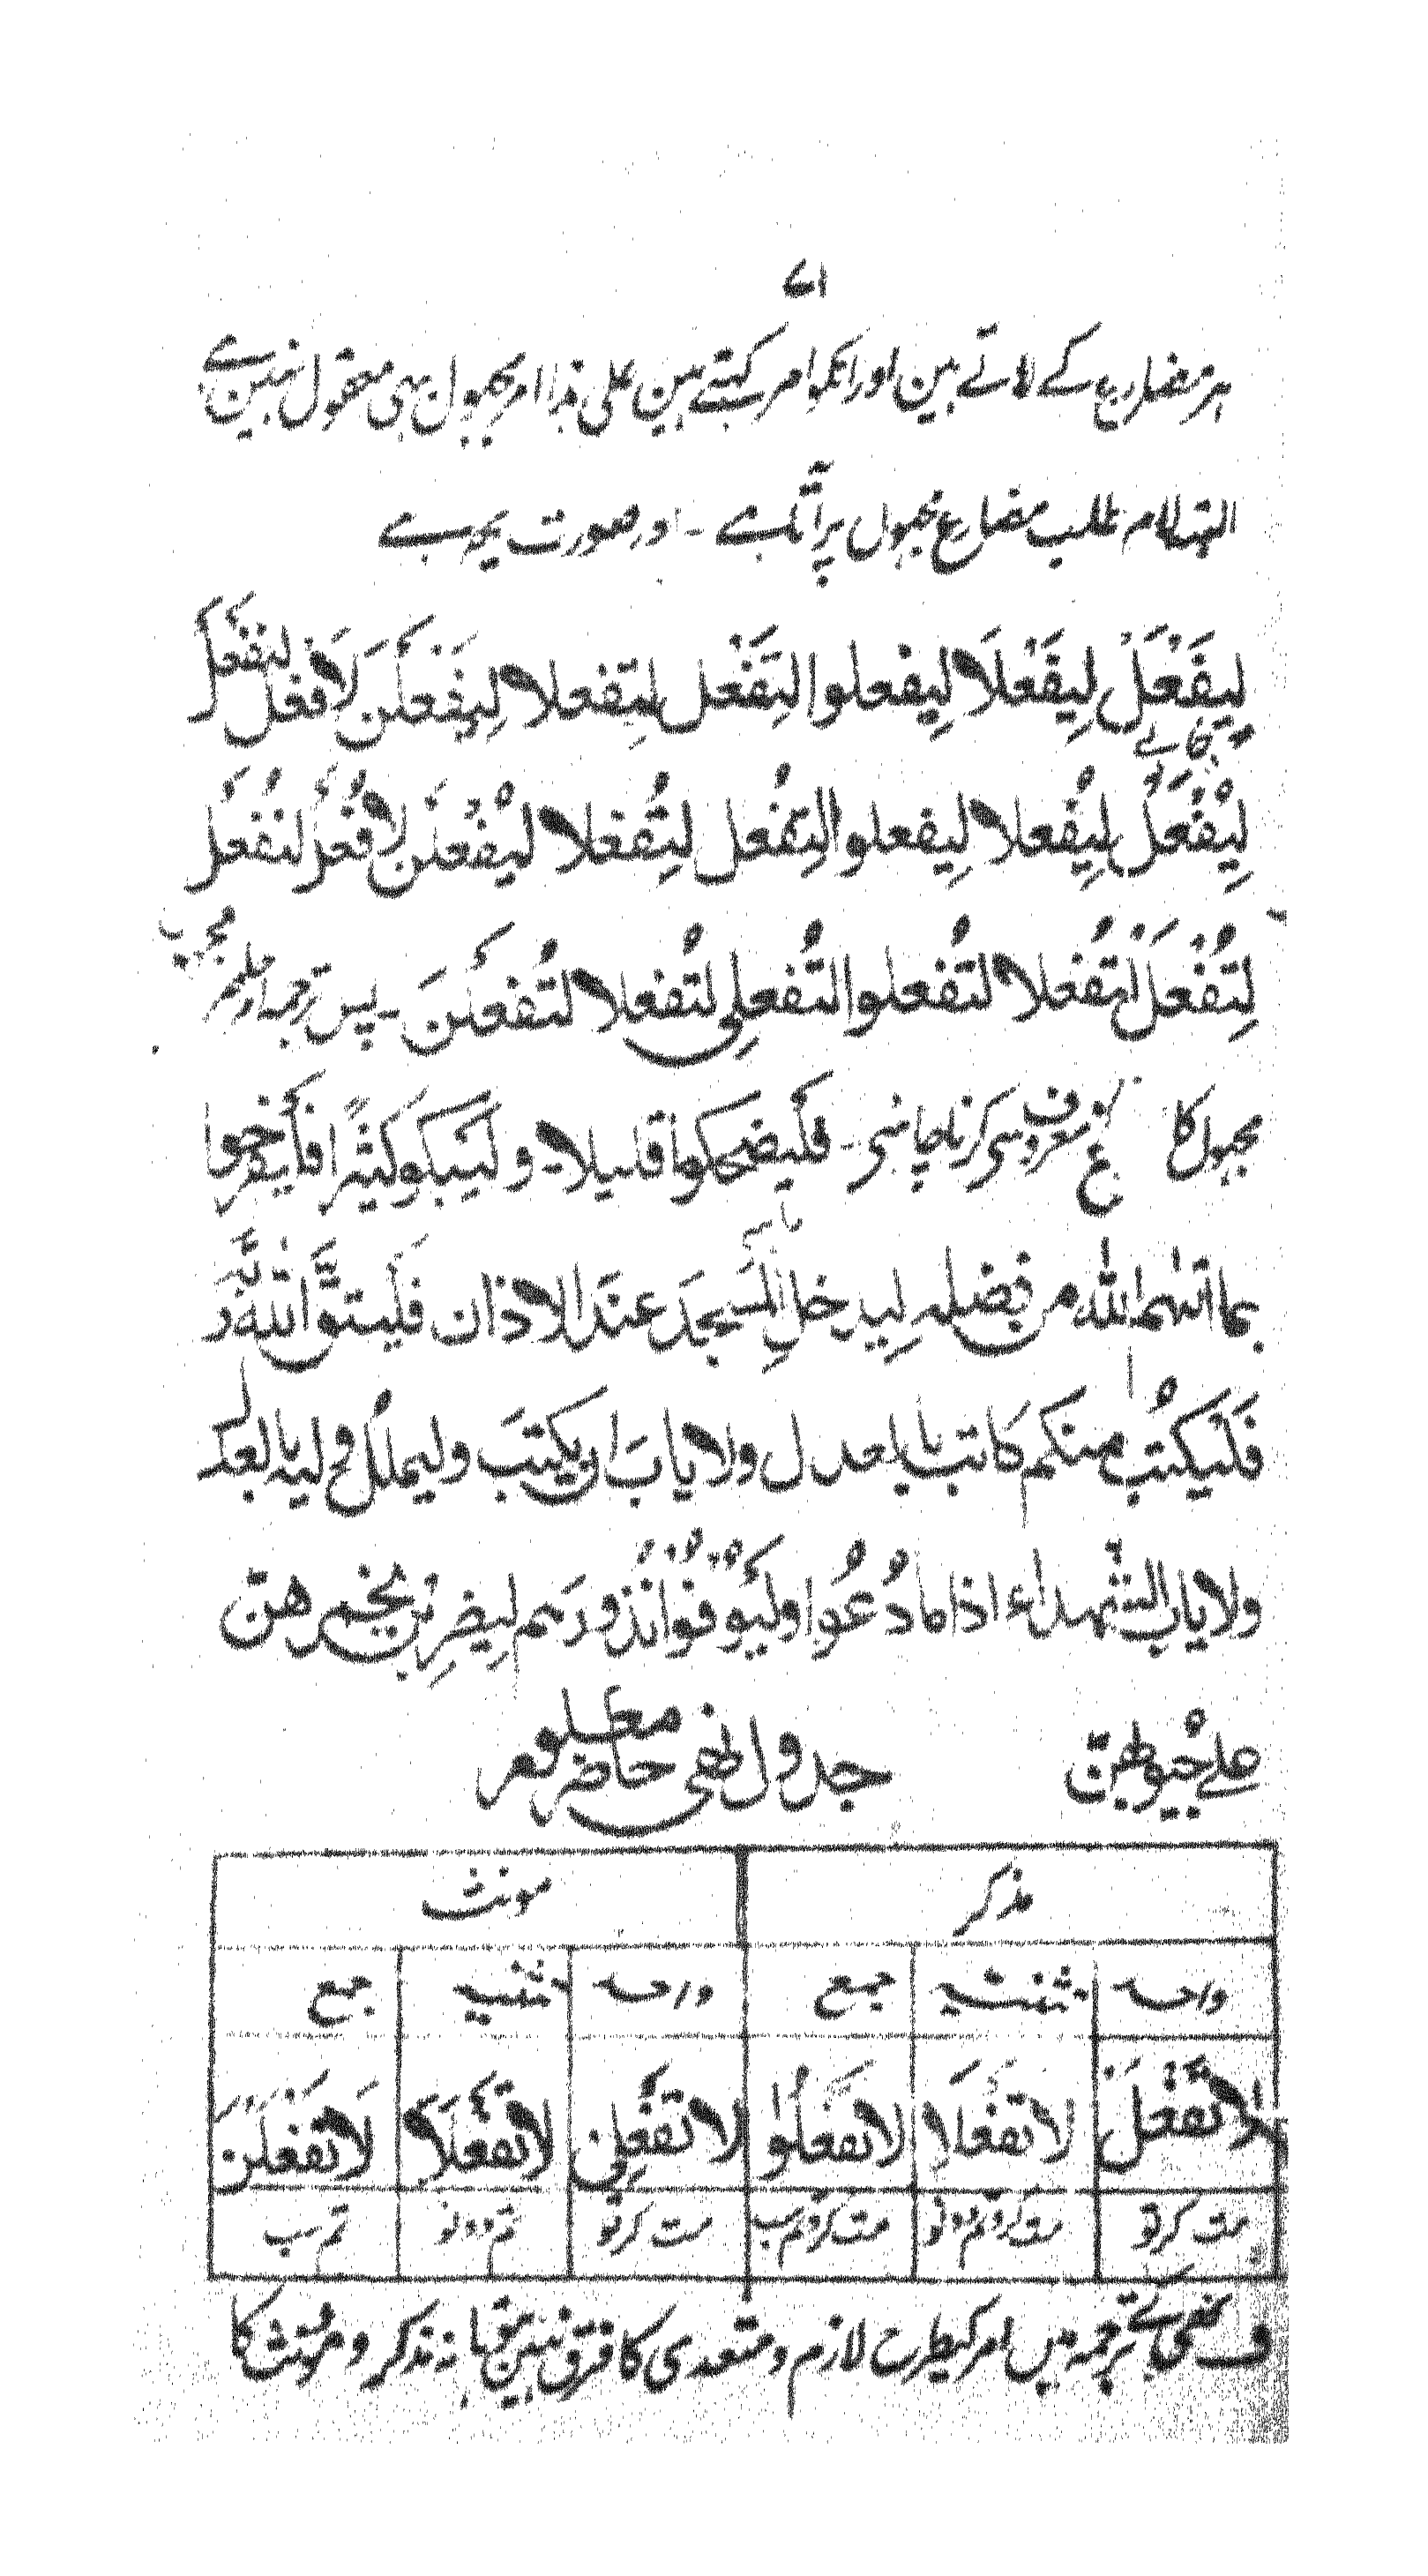 ۷۱
ہر مضارع کے لاتے ہین اور انکو امر کہتے ہین علی ہذا امر مجہول بہی معقول نہین ہے
البتہ لام طلب مضارع مجہول پر آتا ہے - اور صورت یہہ ہے
لِيَفْعَلْ لِيَفْعَلَا لِيفعلوا لِتَفْعَل لِتفعلا لِيَفْعَلْنَ لَافعل لنفعلْ
لِيُفْعَلْ لِيُفعلا لِيفعلوا لِتُفعل لِتُفعلا لِيُفْعَلْنَ لِاُفْعَلْ لنُفْعَلْ
لِتُفْعَلْ لِتُفعلا لتُفعلوا لتُفعلِى لتُفعلا لتُفعلنَ - پس ترجمہ اور علم
مجہول کا معروف سی کرنا چاہئی - فلْيضحكوا قليلا - و لْيَبكو كثيرًا فلْيفرحوا
بما اتٰهم اللّٰه من فضله لِيدخلِ المَسجدَ عندَ الاذان فلْيتَّقِ اللّٰه رَبَّه
فَلْيكتُب منكم كاتب بالعدل ولا يابَ ان يكتبَ وليملل وليه بالعدل
ولا ياب الشهداء اذا ما دُعُوا ولْيُوفُوا نُذُورَهم لِيضرِبن بخمرهن
على جُيوبهن
جدول نهى حاضر معلوم
مذکر مونث
واحد تثنیہ جمع واحد تثنیہ جمع
لَاتَفْعَلْ لاتفعَلَا لاتفعلُوا لاتفعَلِى لاتفعَلَا لَاتَفْعَلْنَ
مت کر تو مت کرو تم دونو مت کرو تم سب مت کر تو تم دونو تم سب
ف نہی کے ترجمہ میں امر کیطرح لازم و متعدی کا فرق نہین ہوتا نہ مذکر و مونث کا